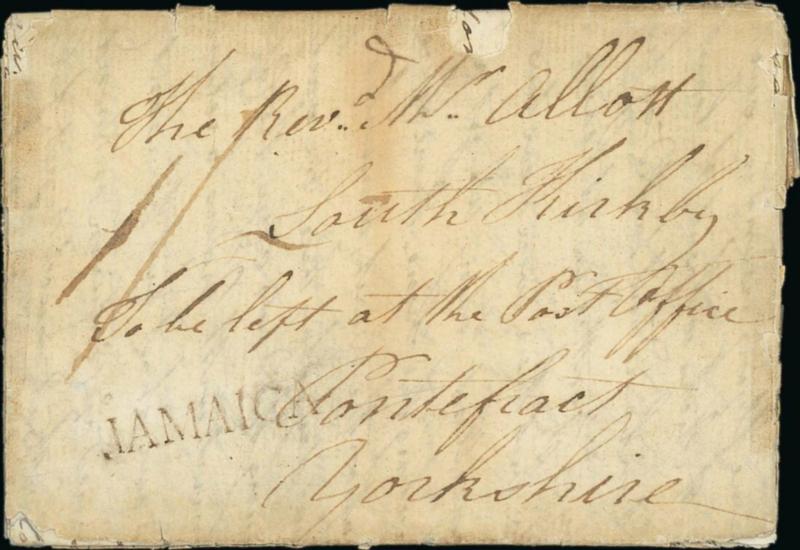 The Revd. Mr. Allott
South Kirkby
To be left at the Post Office
Pontefract
Yorkshire
JAMAICA